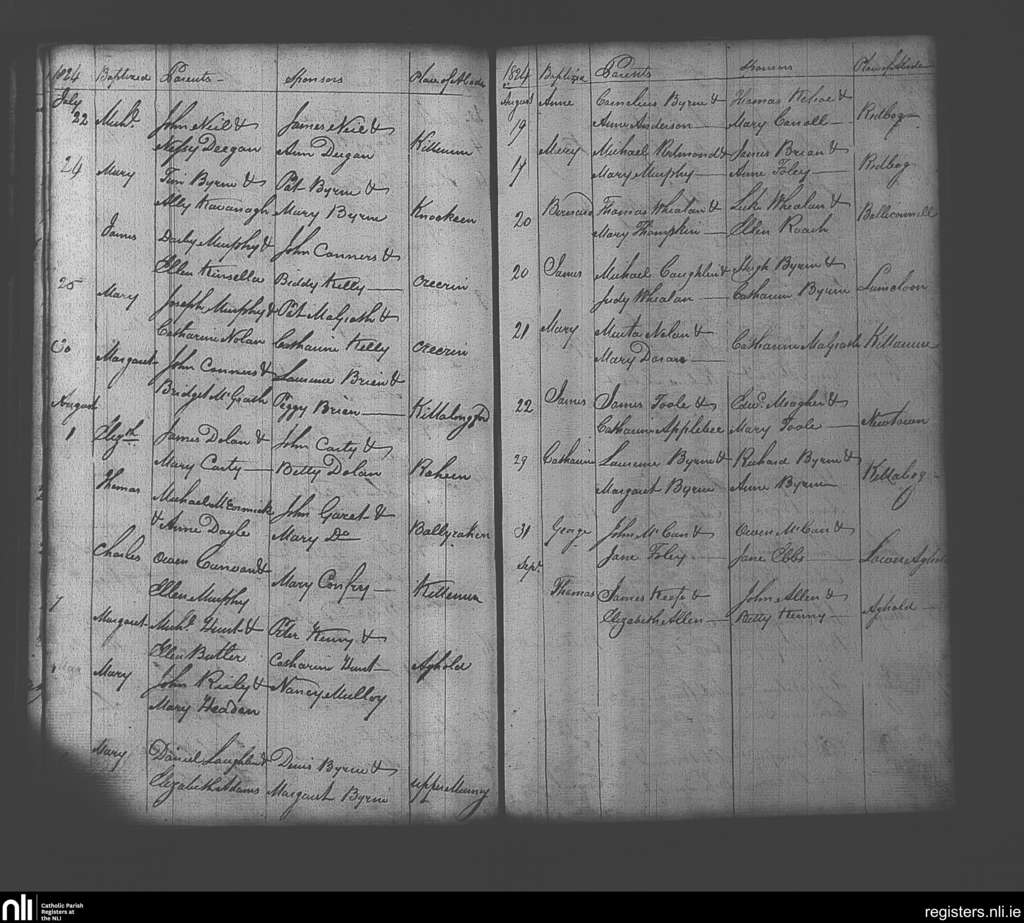 1824 Baptized Parents Sponsors Place of Abode
July
22 Michl. John Neil & James Neil &
Nessy Deegan Ann Deegan Killenure
24 Mary Tim Byrne & Pat Byrne &
Ally Kavanagh Mary Byrne Knockeen
James Darby Murphy & John Conners &
Ellen Kinsella Biddy Kelly Creerin
25 Mary Joseph Murphy & Pat MaGrath &
Catharine Nolan Catharine Kelly Creerin
30 Margaret John Conners & Laurence Brien &
Bridget McGrath Peggy Brien Killalongford
August
1 Elizth. James Dolan & John Carty &
Mary Carty Betty Dolan Raheen
Thomas Michael McCormick John Garet &
& Anne Doyle Mary Do Ballyraheen
Charles Owen &
Ellen Murphy Mary Confry Killenure
7 Margaret Michl. Hunt & Peter Kenny &
Ellen Butler Catharine Hunt Aghold
Mary John Riely & Nancy Mulloy
Mary Headen
Mary Daniel Laughlin & Denis Byrne &
Elizabeth Adams Margaret Byrne upper Munny
1824 Baptized Parents Sponsors Place of Abode
August Anne Cornelius Byrne & Thomas Kehoe &
19 Anne Anderson Mary Carroll Redbog
Mary Michael Redmond & James Brian &
19 Mary Murphy Anne Foley Redbog
Bernard Thomas Whealan & Luke Whealan &
20 Mary Thompkin Ellen Roach Balliconnell
20 James Michael Coughlin & Hugh Byrne &
Judy Whealan Catharine Byrne
21 Mary Nolan &
Mary Catharine MaGrath Killenure
22 James James Toole & Edwd. Meagher &
Catharine Appletree Mary Toole Newtown
29 Catharine Laurence Byrne & Richard Byrne &
Margaret Byrne Anne Byrne Killabeg
31 George John McCan & Owen McCan &
Jane Foley Jane Ebbs Lower
Sepr.
Thomas James Keefe & John Allen &
Elizabeth Allen Betty Kenny Aghold
nli Catholic Parish
Registers at
the NLI
registers.nli.ie